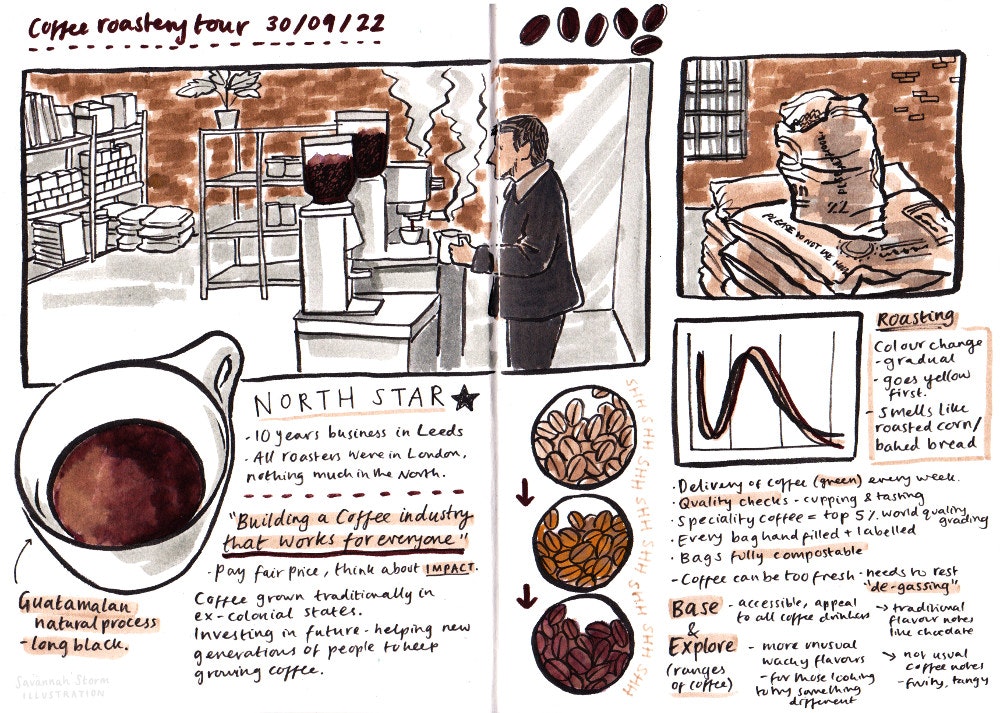 Coffee roastery tour 30/09/22
PLEASE DO NOT USE
Guatamalan
natural process
- long black.
Savannah Storm
ILLUSTRATION
NORTH STAR
- 10 years business in Leeds
- All roasters were in London,
nothing much in the North.
"Building a Coffee industry
that works for everyone"
- Pay fair price, think about IMPACT.
Coffee grown traditionally in
ex-colonial states.
Investing in future - helping new
generations of people to keep
growing coffee.
SHH SHH SHH SHH SHH SHH SHH
Roasting
Colour change
- gradual
- goes yellow
first.
- Smells like
roasted corn/
baked bread
- Delivery of coffee (green) every week.
- Quality checks - cupping & tasting
- Speciality coffee = top 5% world quality
grading
- Every bag hand filled + labelled
- Bags fully compostable
- Coffee can be too fresh - needs to rest
"de-gassing"
Base
&
Explore
(ranges
of coffee)
- accessible, appeal
to all coffee drinkers
→ traditional
flavour notes
like chocolate
- more unusual
wacky flavours
- for those looking
to try something
different
→ not usual
coffee notes
- fruity, tangy